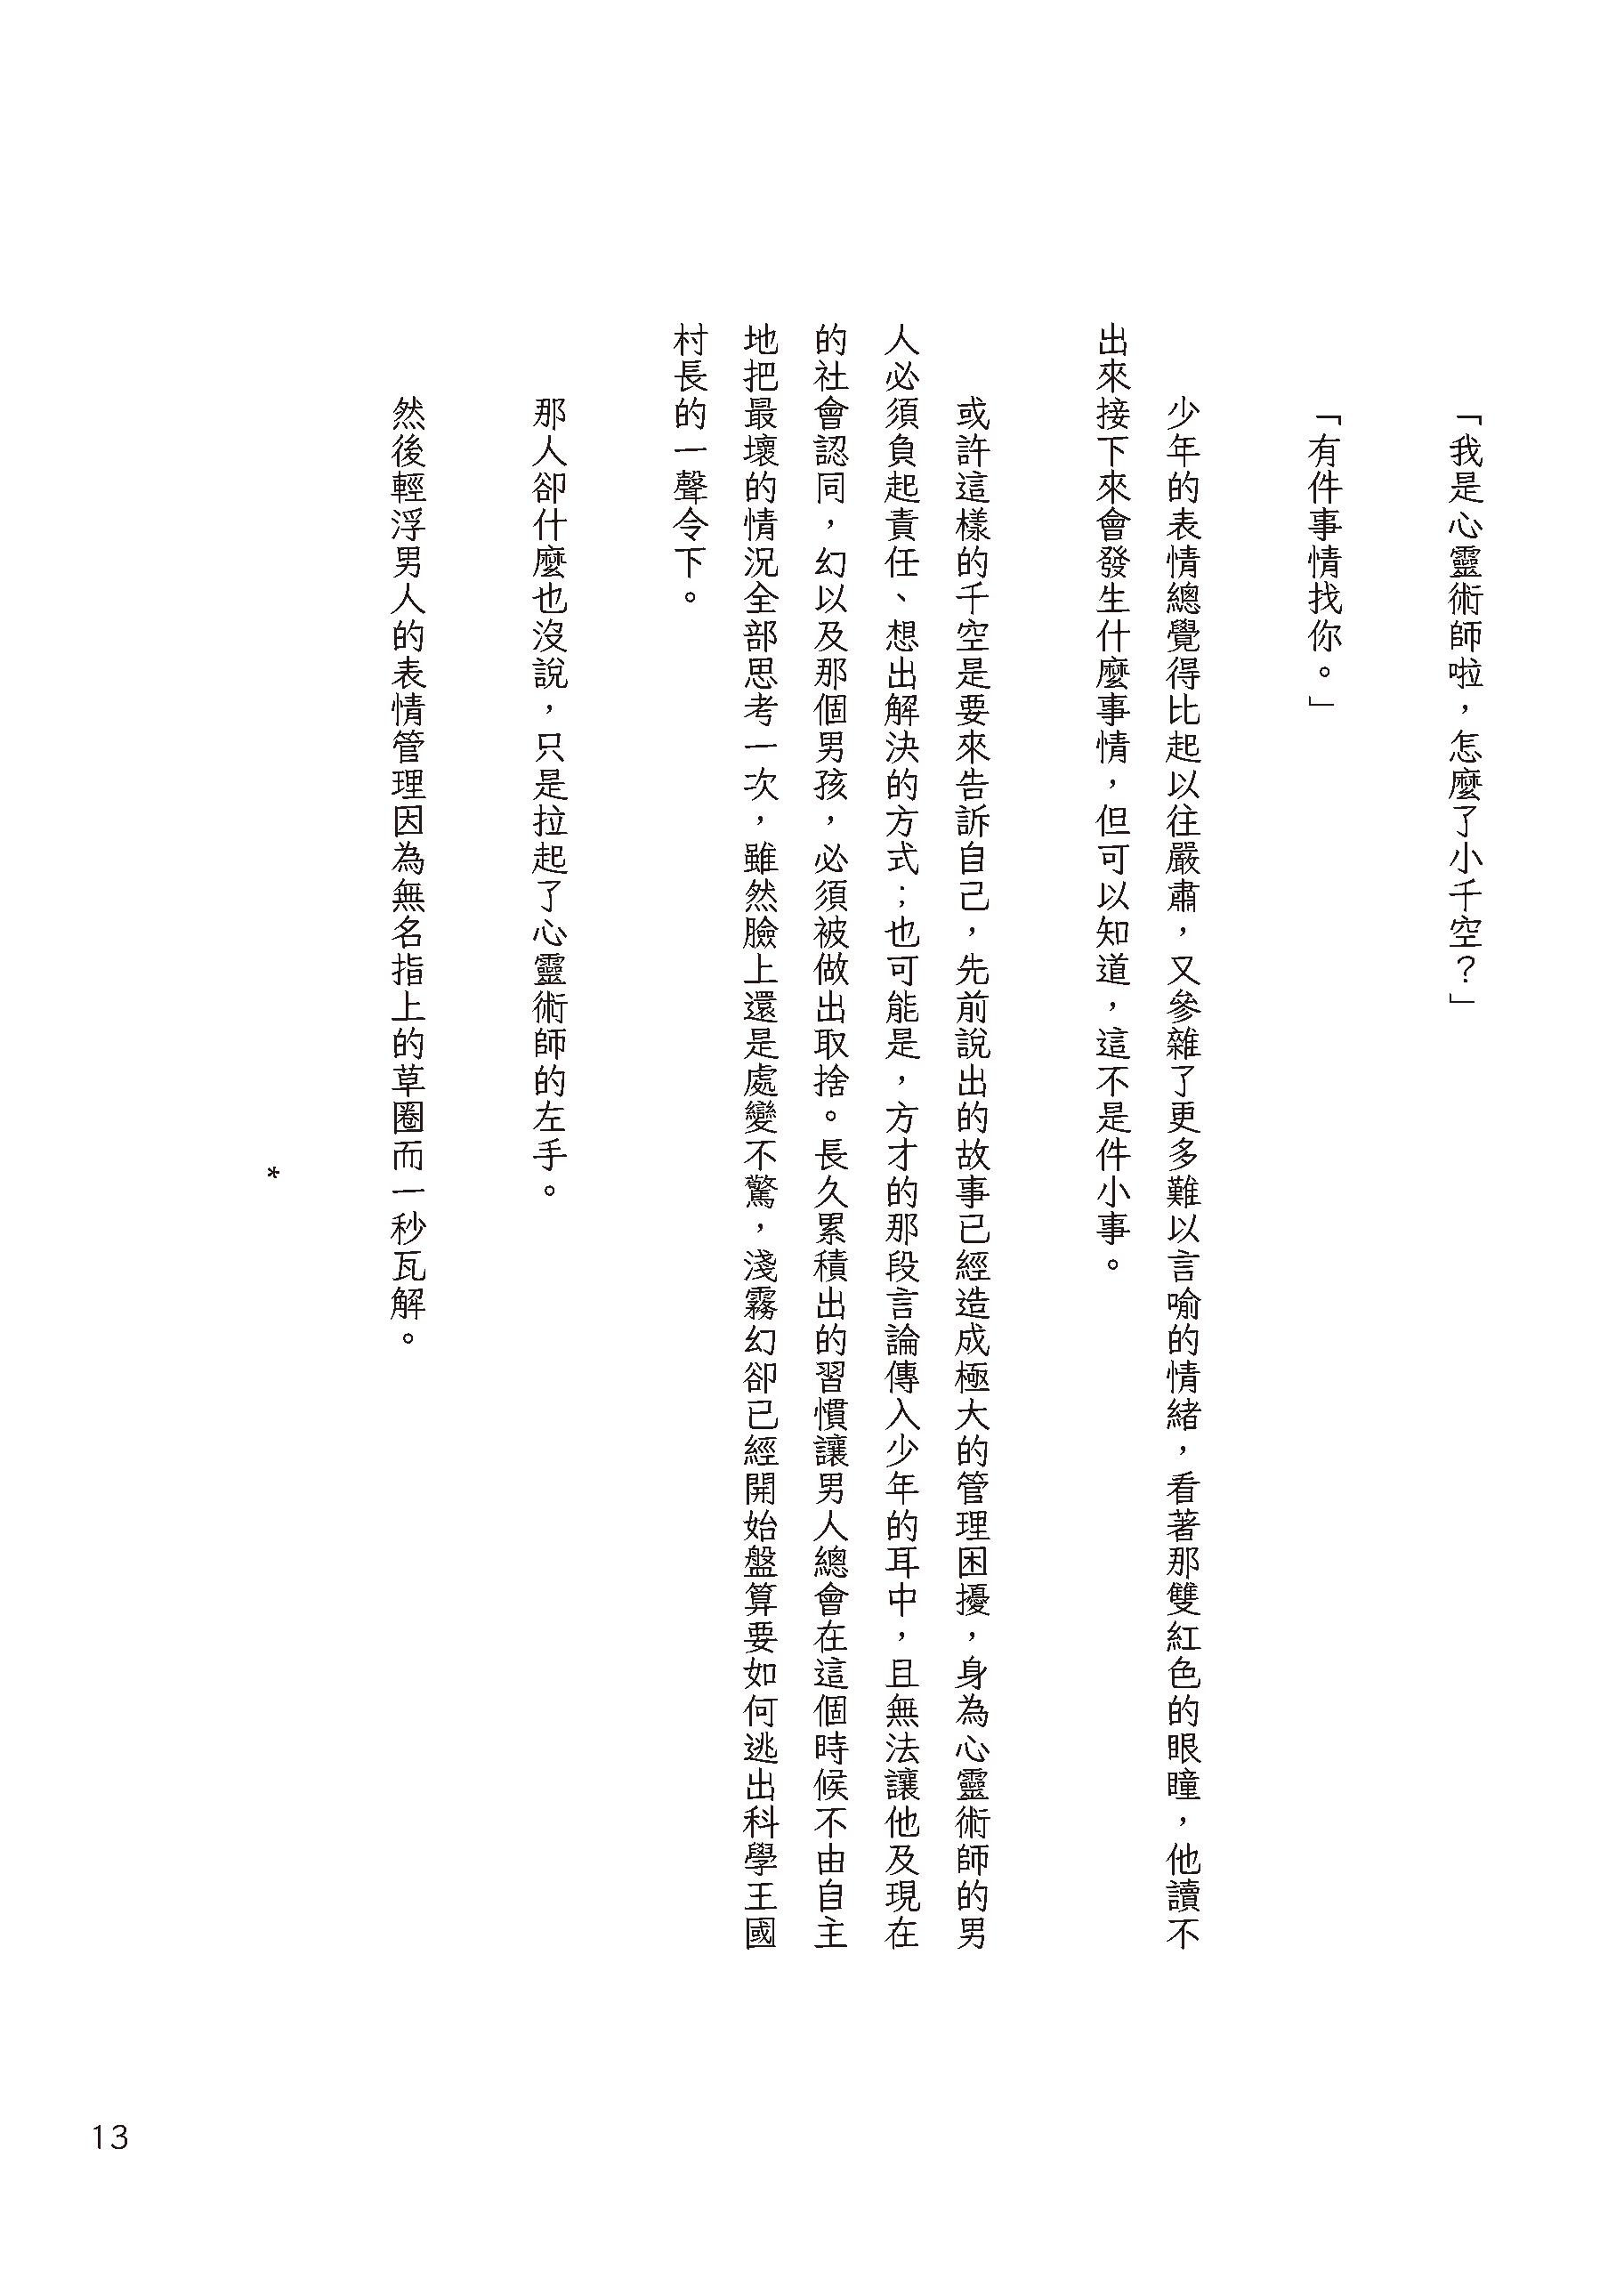 「我是心靈術師啦，怎麼了小千空？」
「有件事情找你。」
少年的表情總覺得比起以往嚴肅，又參雜了更多難以言喻的情緒，看著那雙紅色的眼瞳，他讀不
出來接下來會發生什麼事情，但可以知道，這不是件小事。
或許這樣的千空是要來告訴自己，先前說出的故事已經造成極大的管理困擾，身為心靈術師的男
人必須負起責任、想出解決的方式；也可能是，方才的那段言論傳入少年的耳中，且無法讓他及現在
的社會認同，幻以及那個男孩，必須被做出取捨。長久累積出的習慣讓男人總會在這個時候不由自主
地把最壞的情況全部思考一次，雖然臉上還是處變不驚，淺霧幻卻已經開始盤算要如何逃出科學王國
村長的一聲令下。
那人卻什麼也沒說，只是拉起了心靈術師的左手。
然後輕浮男人的表情管理因為無名指上的草圈而一秒瓦解。
*
13